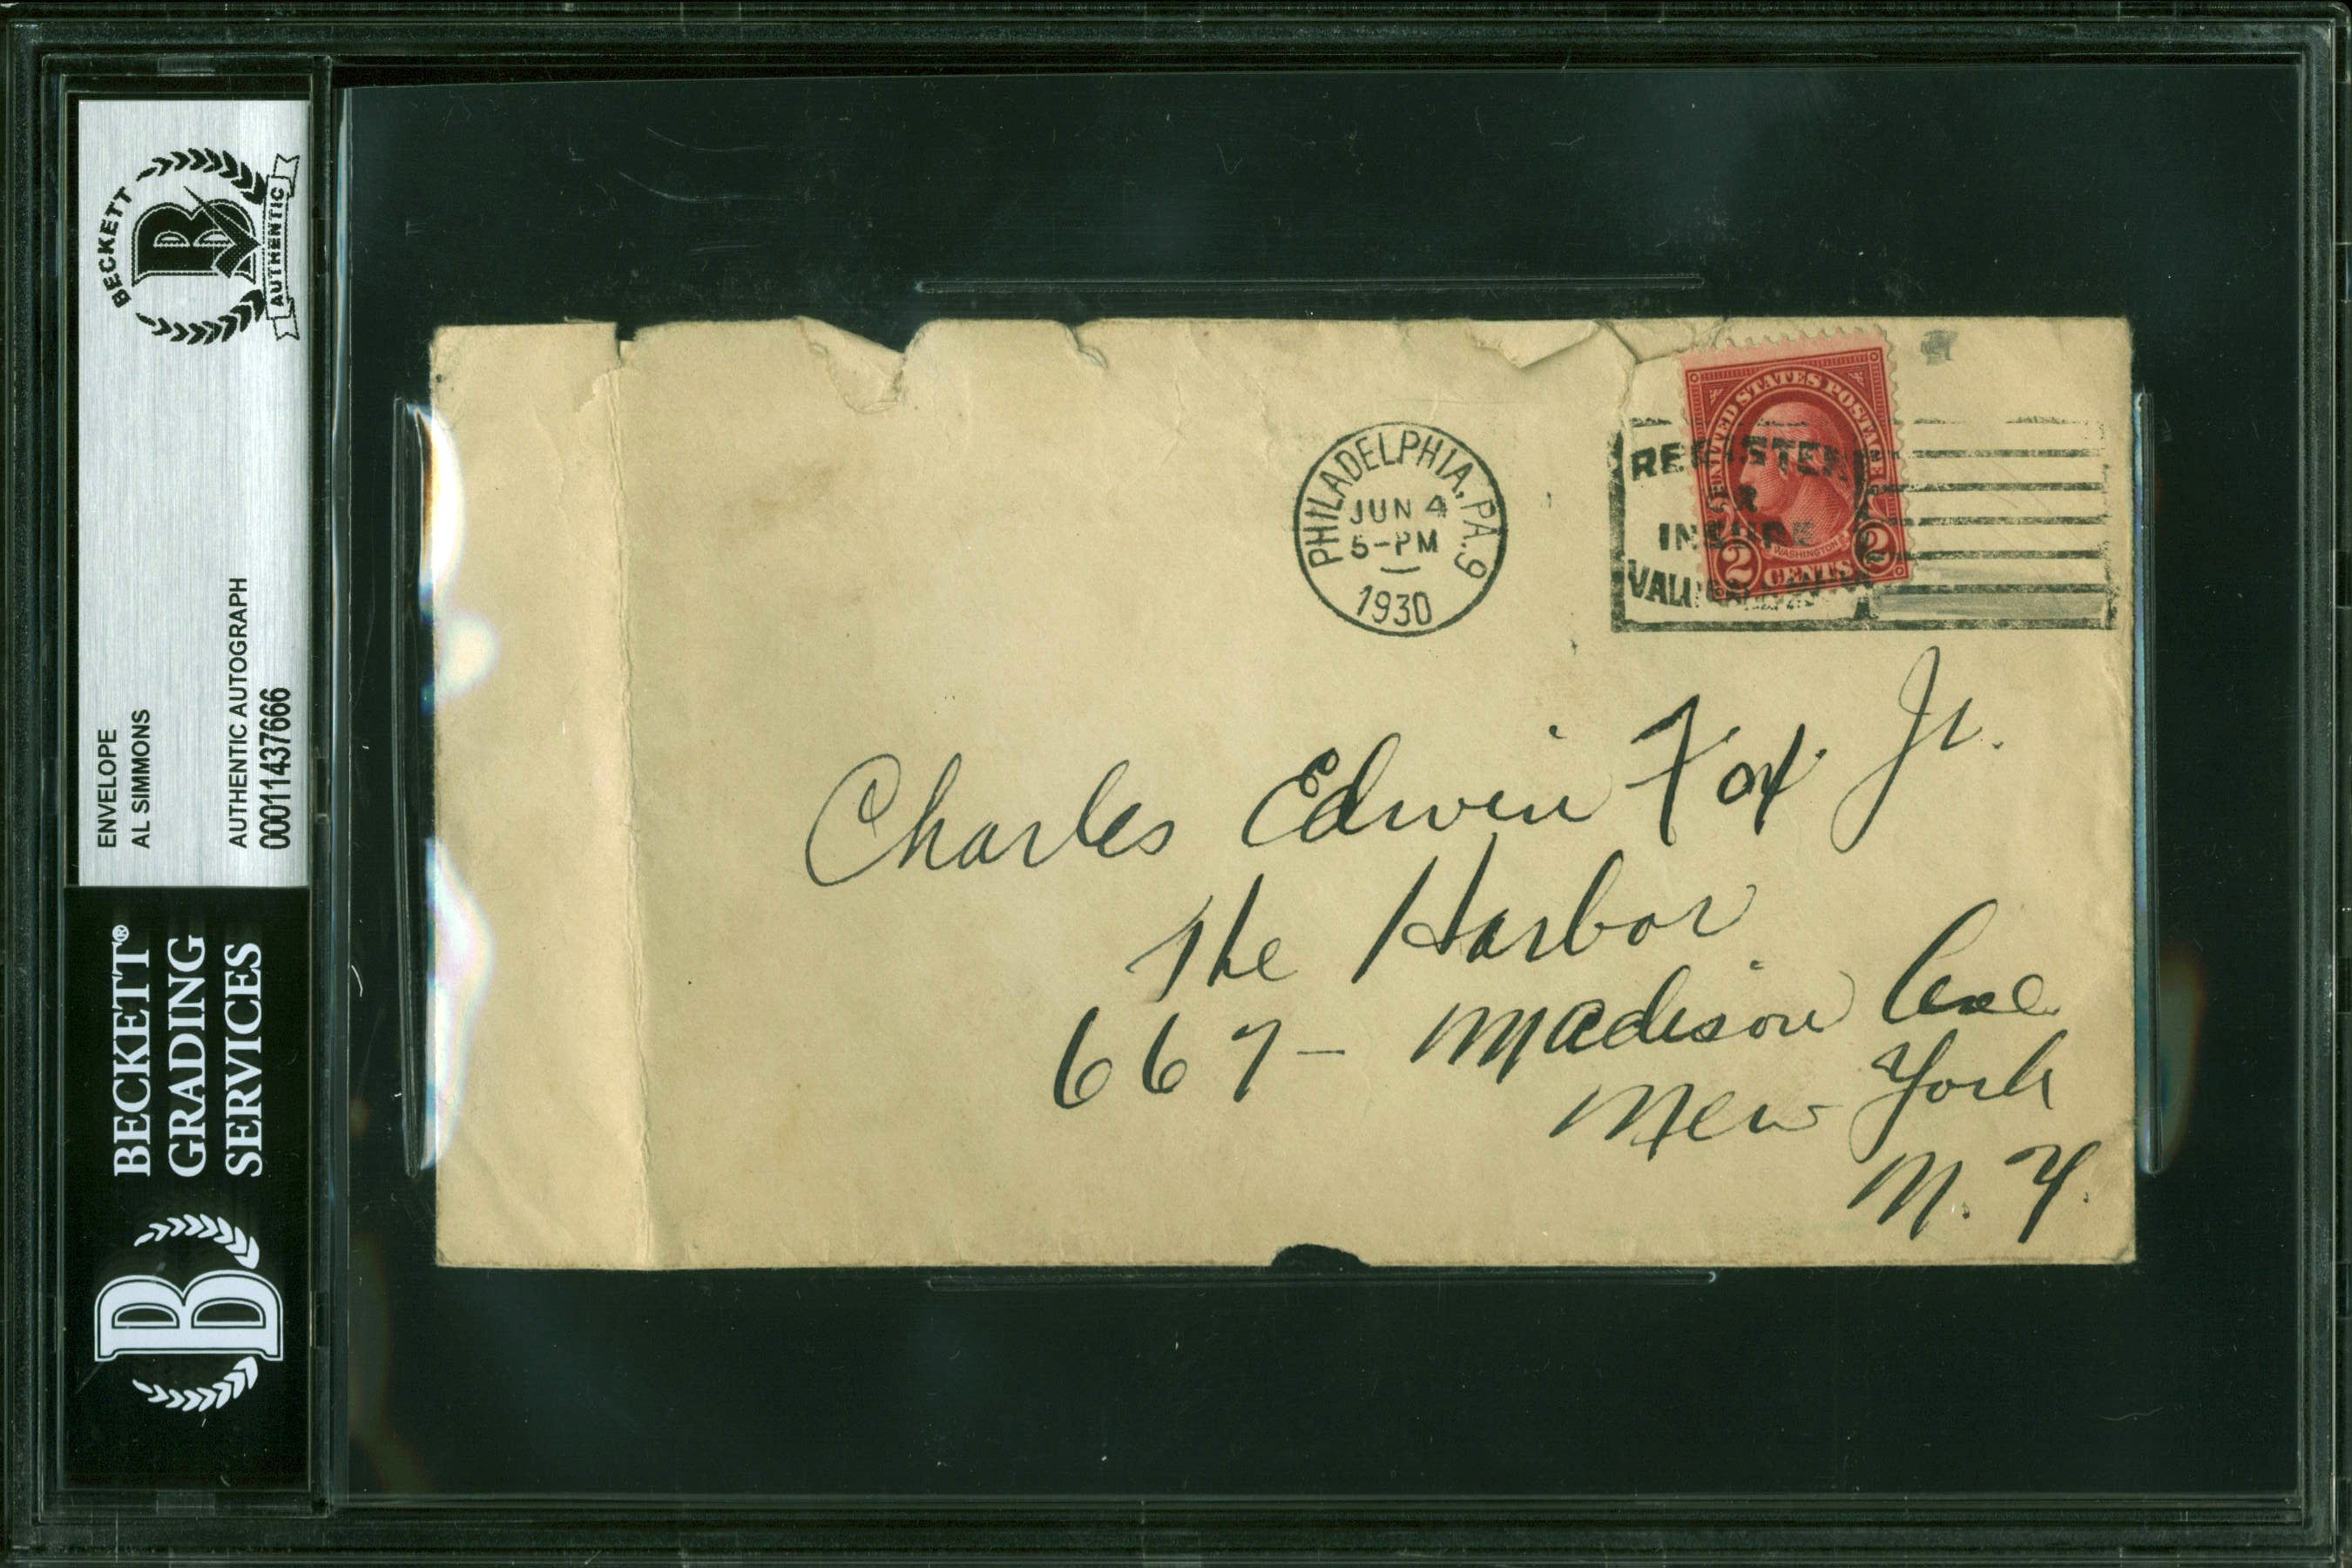 BECKETT
B
AUTHENTIC
ENVELOPE
AL SIMMONS
AUTHENTIC AUTOGRAPH
00011437666
BECKETT®
GRADING
SERVICES
B
PHILADELPHIA, PA. 9
JUN 4
5-PM
1930
REGISTER
OR
INSURE
UNITED STATES POSTAGE
WASHINGTON
2 CENTS 2
Charles Edwin Fox Jr.
The Harbor
667- Madison Ave
New York
N. Y.